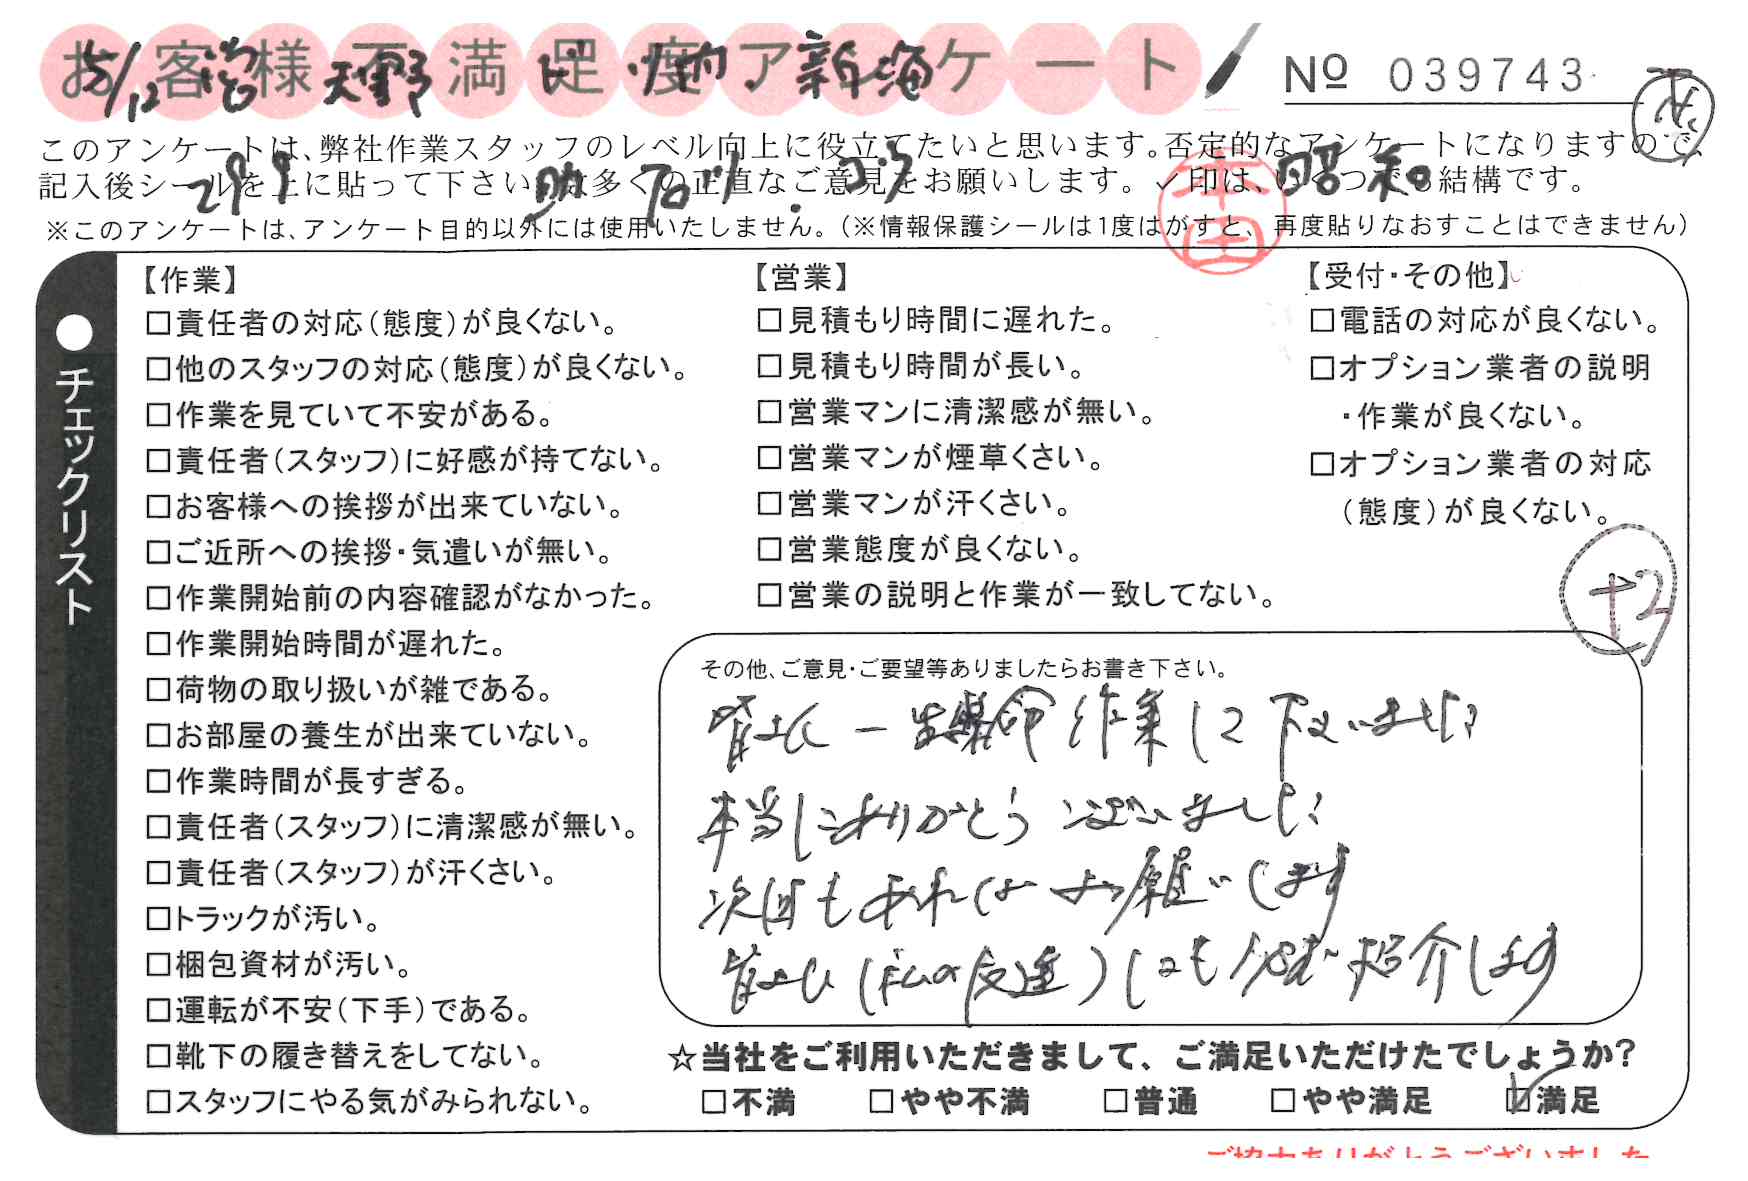 お客様不満足度アンケート
5/12
天野
新海
Nº 039743
このアンケートは、弊社作業スタッフのレベル向上に役立てたいと思います。否定的なアンケートになりますので、
記入後シールを上に貼って下さい。数多くの正直なご意見をお願いします。✓印は、いくつでも結構です。
299
助
昭和
本田
※このアンケートは、アンケート目的以外には使用いたしません。(※情報保護シールは1度はがすと、再度貼りなおすことはできません)
●チェックリスト
【作業】
□責任者の対応(態度)が良くない。
□他のスタッフの対応(態度)が良くない。
□作業を見ていて不安がある。
□責任者(スタッフ)に好感が持てない。
□お客様への挨拶が出来ていない。
□ご近所への挨拶・気遣いが無い。
□作業開始前の内容確認がなかった。
□作業開始時間が遅れた。
□荷物の取り扱いが雑である。
□お部屋の養生が出来ていない。
□作業時間が長すぎる。
□責任者(スタッフ)に清潔感が無い。
□責任者(スタッフ)が汗くさい。
□トラックが汚い。
□梱包資材が汚い。
□運転が不安(下手)である。
□靴下の履き替えをしてない。
□スタッフにやる気がみられない。
【営業】
□見積もり時間に遅れた。
□見積もり時間が長い。
□営業マンに清潔感が無い。
□営業マンが煙草くさい。
□営業マンが汗くさい。
□営業態度が良くない。
□営業の説明と作業が一致してない。
【受付・その他】
□電話の対応が良くない。
□オプション業者の説明
・作業が良くない。
□オプション業者の対応
(態度)が良くない。
+2
その他、ご意見・ご要望等ありましたらお書き下さい。
皆さん 一生懸命 作業して下さいました
本当にありがとうございました!
次回もあればお願いします
皆さん(私の友達)にもぜひ紹介します
☆当社をご利用いただきまして、ご満足いただけたでしょうか?
□不満 □やや不満 □普通 □やや満足 ☑満足
ご協力ありがとうございました